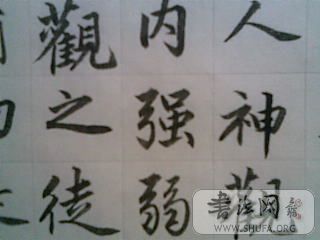 人神觀
内强弱
觀之徒
书法网
WWW.SHUFA.ORG